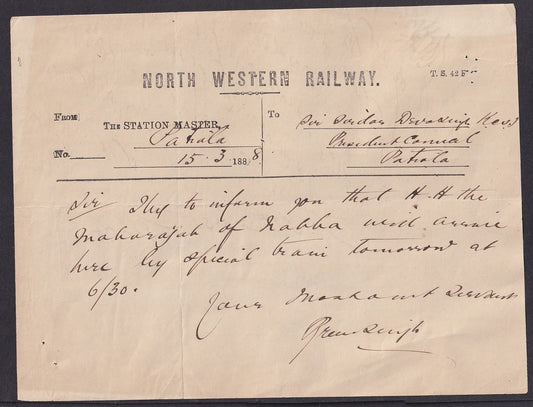 NORTH WESTERN RAILWAY.
T. S. 42 F
FROM
THE STATION MASTER,
Patiala
No.
15. 3 1888
To
Sir Sirdar Deva Singh K.C.S.I
President Council
Patiala
Sir I beg to inform you that H. H the
Maharajah of Nabha will arrive
here by special train tomorrow at
6/30.
Your Most obt Servant
Singh